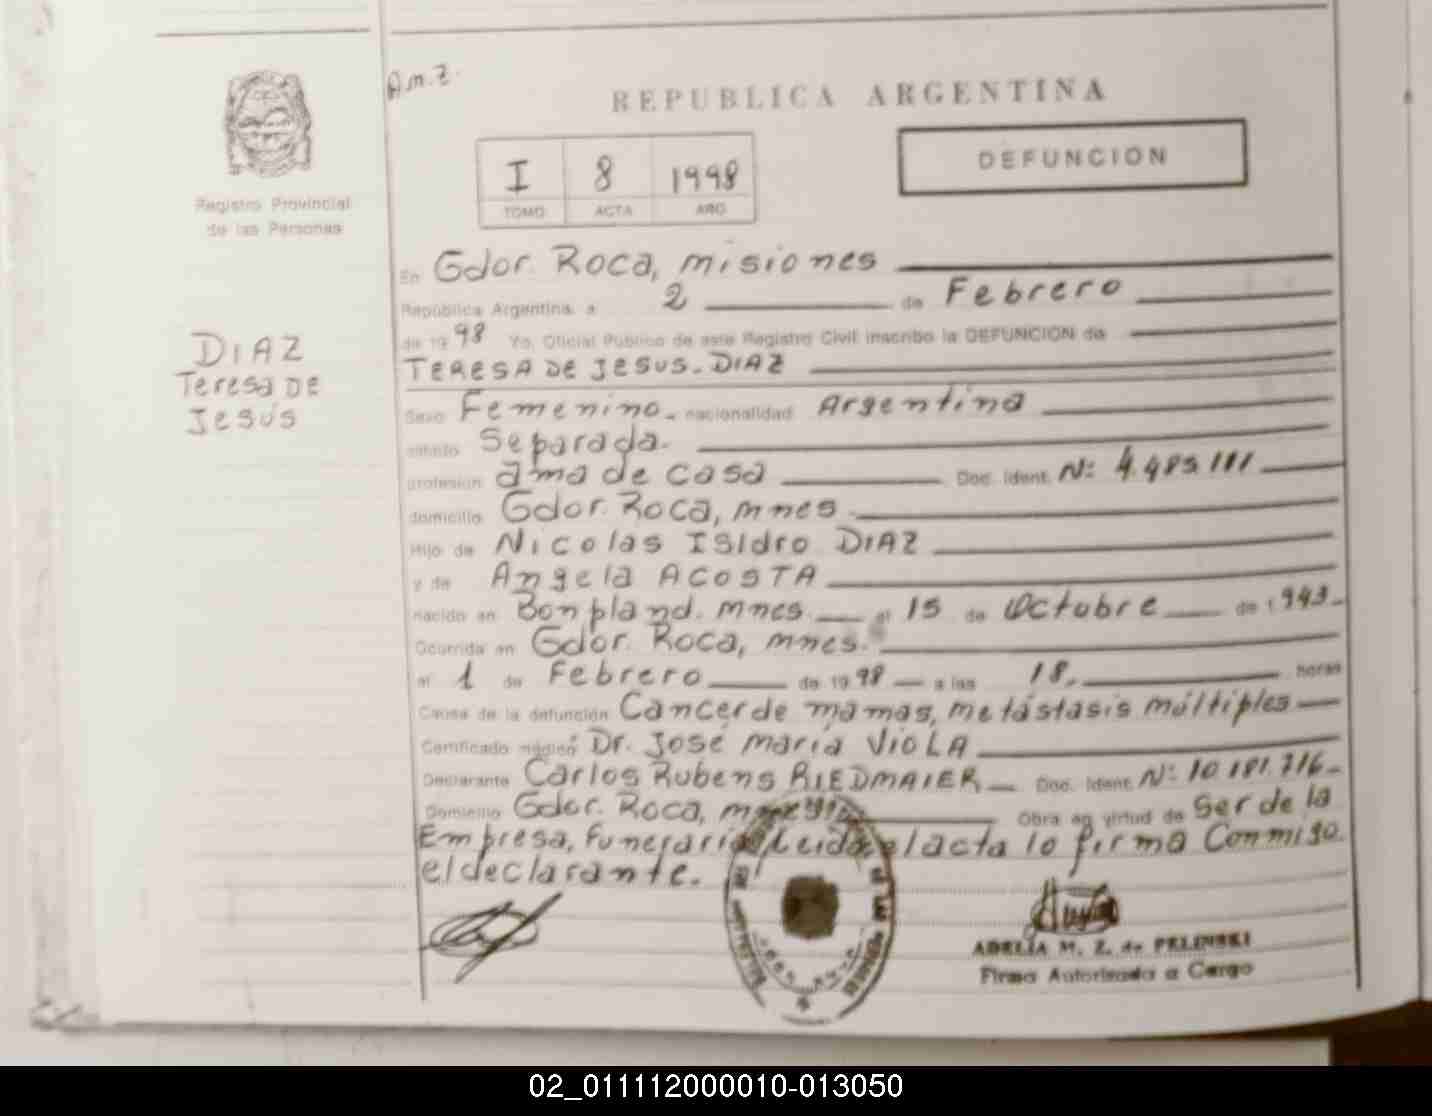 A.M.Z.
REPUBLICA ARGENTINA
I 8 1998
TOMO ACTA AÑO
DEFUNCION
Registro Provincial
de las Personas
DIAZ
Teresa DE
Jesús
En Gdor. Roca, misiones
República Argentina, a 2 de Febrero
de 19 98 Yo, Oficial Público de este Registro Civil inscribo la DEFUNCION de
TERESA DE JESUS. DIAZ
Sexo Femenino. nacionalidad Argentina
estado Separada.
profesión ama de casa Doc. Ident. Nº 4.485.111
domicilio Gdor. Roca, mnes
Hijo de Nicolas Isidro DIAZ
y de Angela ACOSTA
nacido en Bonpland. mnes. el 15 de Octubre de 1.943.
Ocurrida en Gdor. Roca, mnes.
el 1 de Febrero de 19 98 a las 18. horas
Causa de la defunción Cancer de mamas, metástasis múltiples
Certificado médico Dr. José maría VIOLA
Declarante Carlos Rubens RIEDMAIER Doc. Ident. Nº 10.181.716
Domicilio Gdor. Roca, Obra en virtud de Ser de la
Empresa, funeraria, Leida el acta lo firma Conmigo
el declarante.
ADELIA M. Z. de PELINSKI
Firma Autorizada a Cargo
02_011112000010-013050